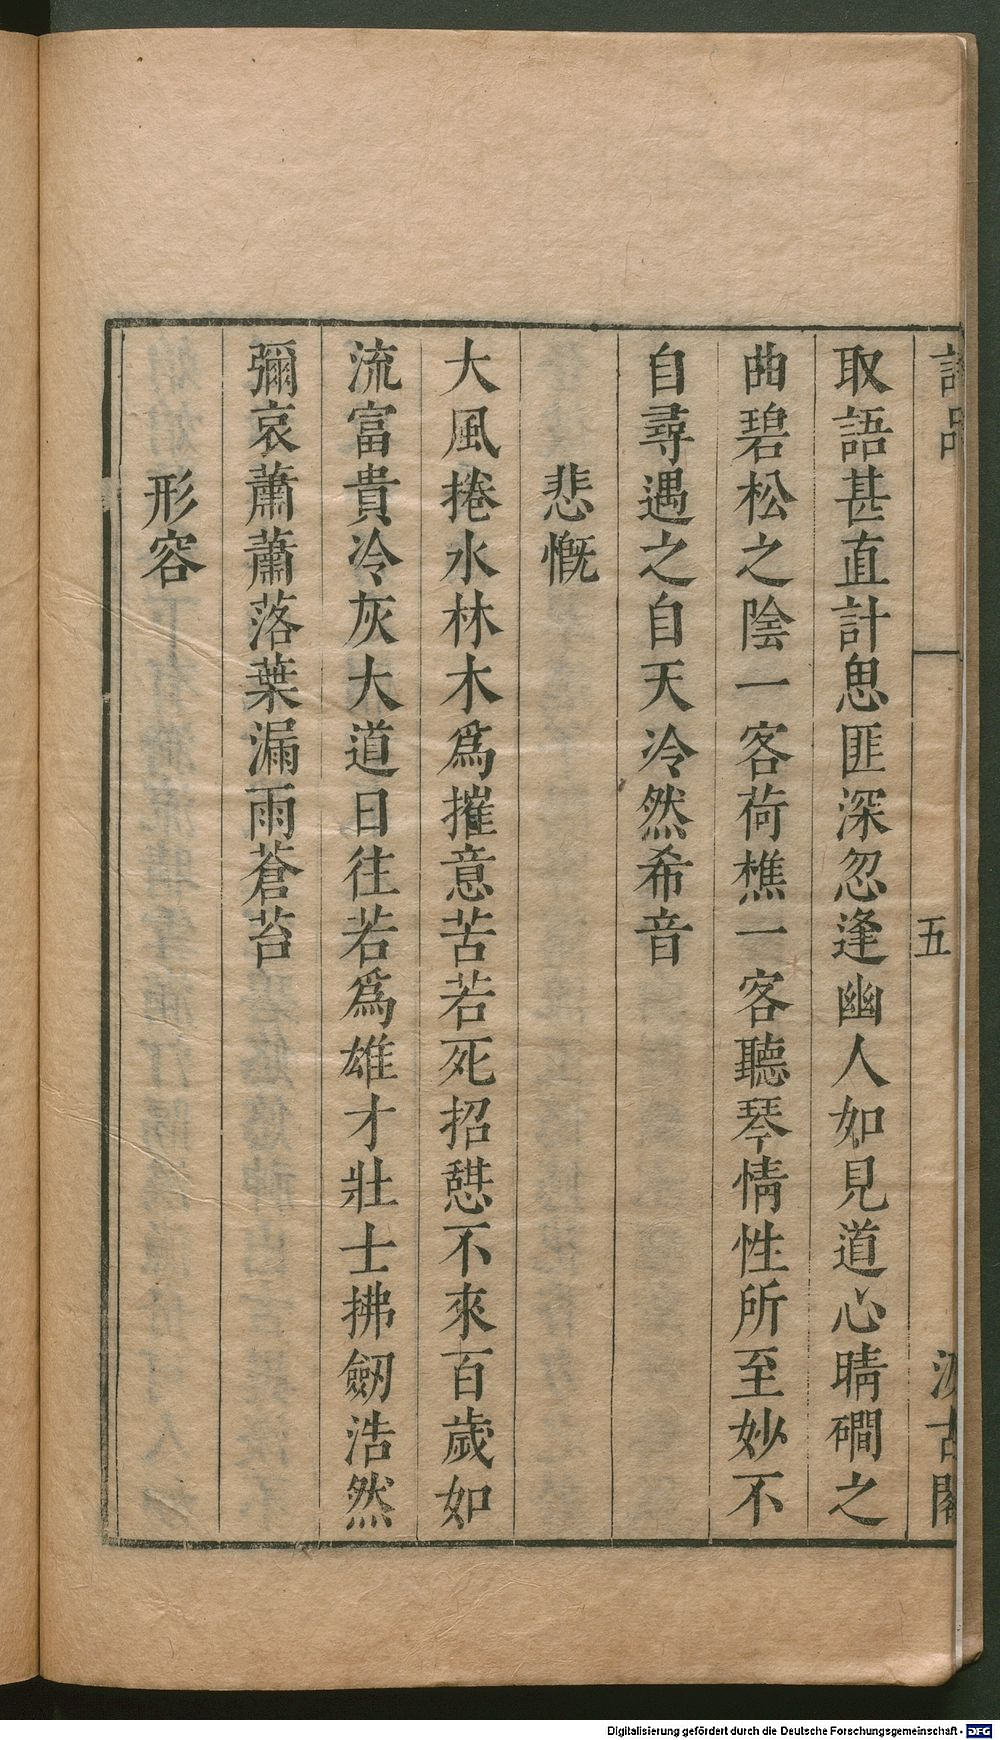 詩品 五 汲古閣
取語甚直計思匪深忽逢幽人如見道心晴磵之
曲碧松之陰一客荷樵一客聽琴情性所至妙不
自尋遇之自天冷然希音
悲慨
大風捲水林木爲摧意苦若死招憇不來百歲如
流富貴冷灰大道日往若爲雄才壯士拂劒浩然
彌哀蕭蕭落葉漏雨蒼苔
形容
Digitalisierung gefördert durch die Deutsche Forschungsgemeinschaft - DFG